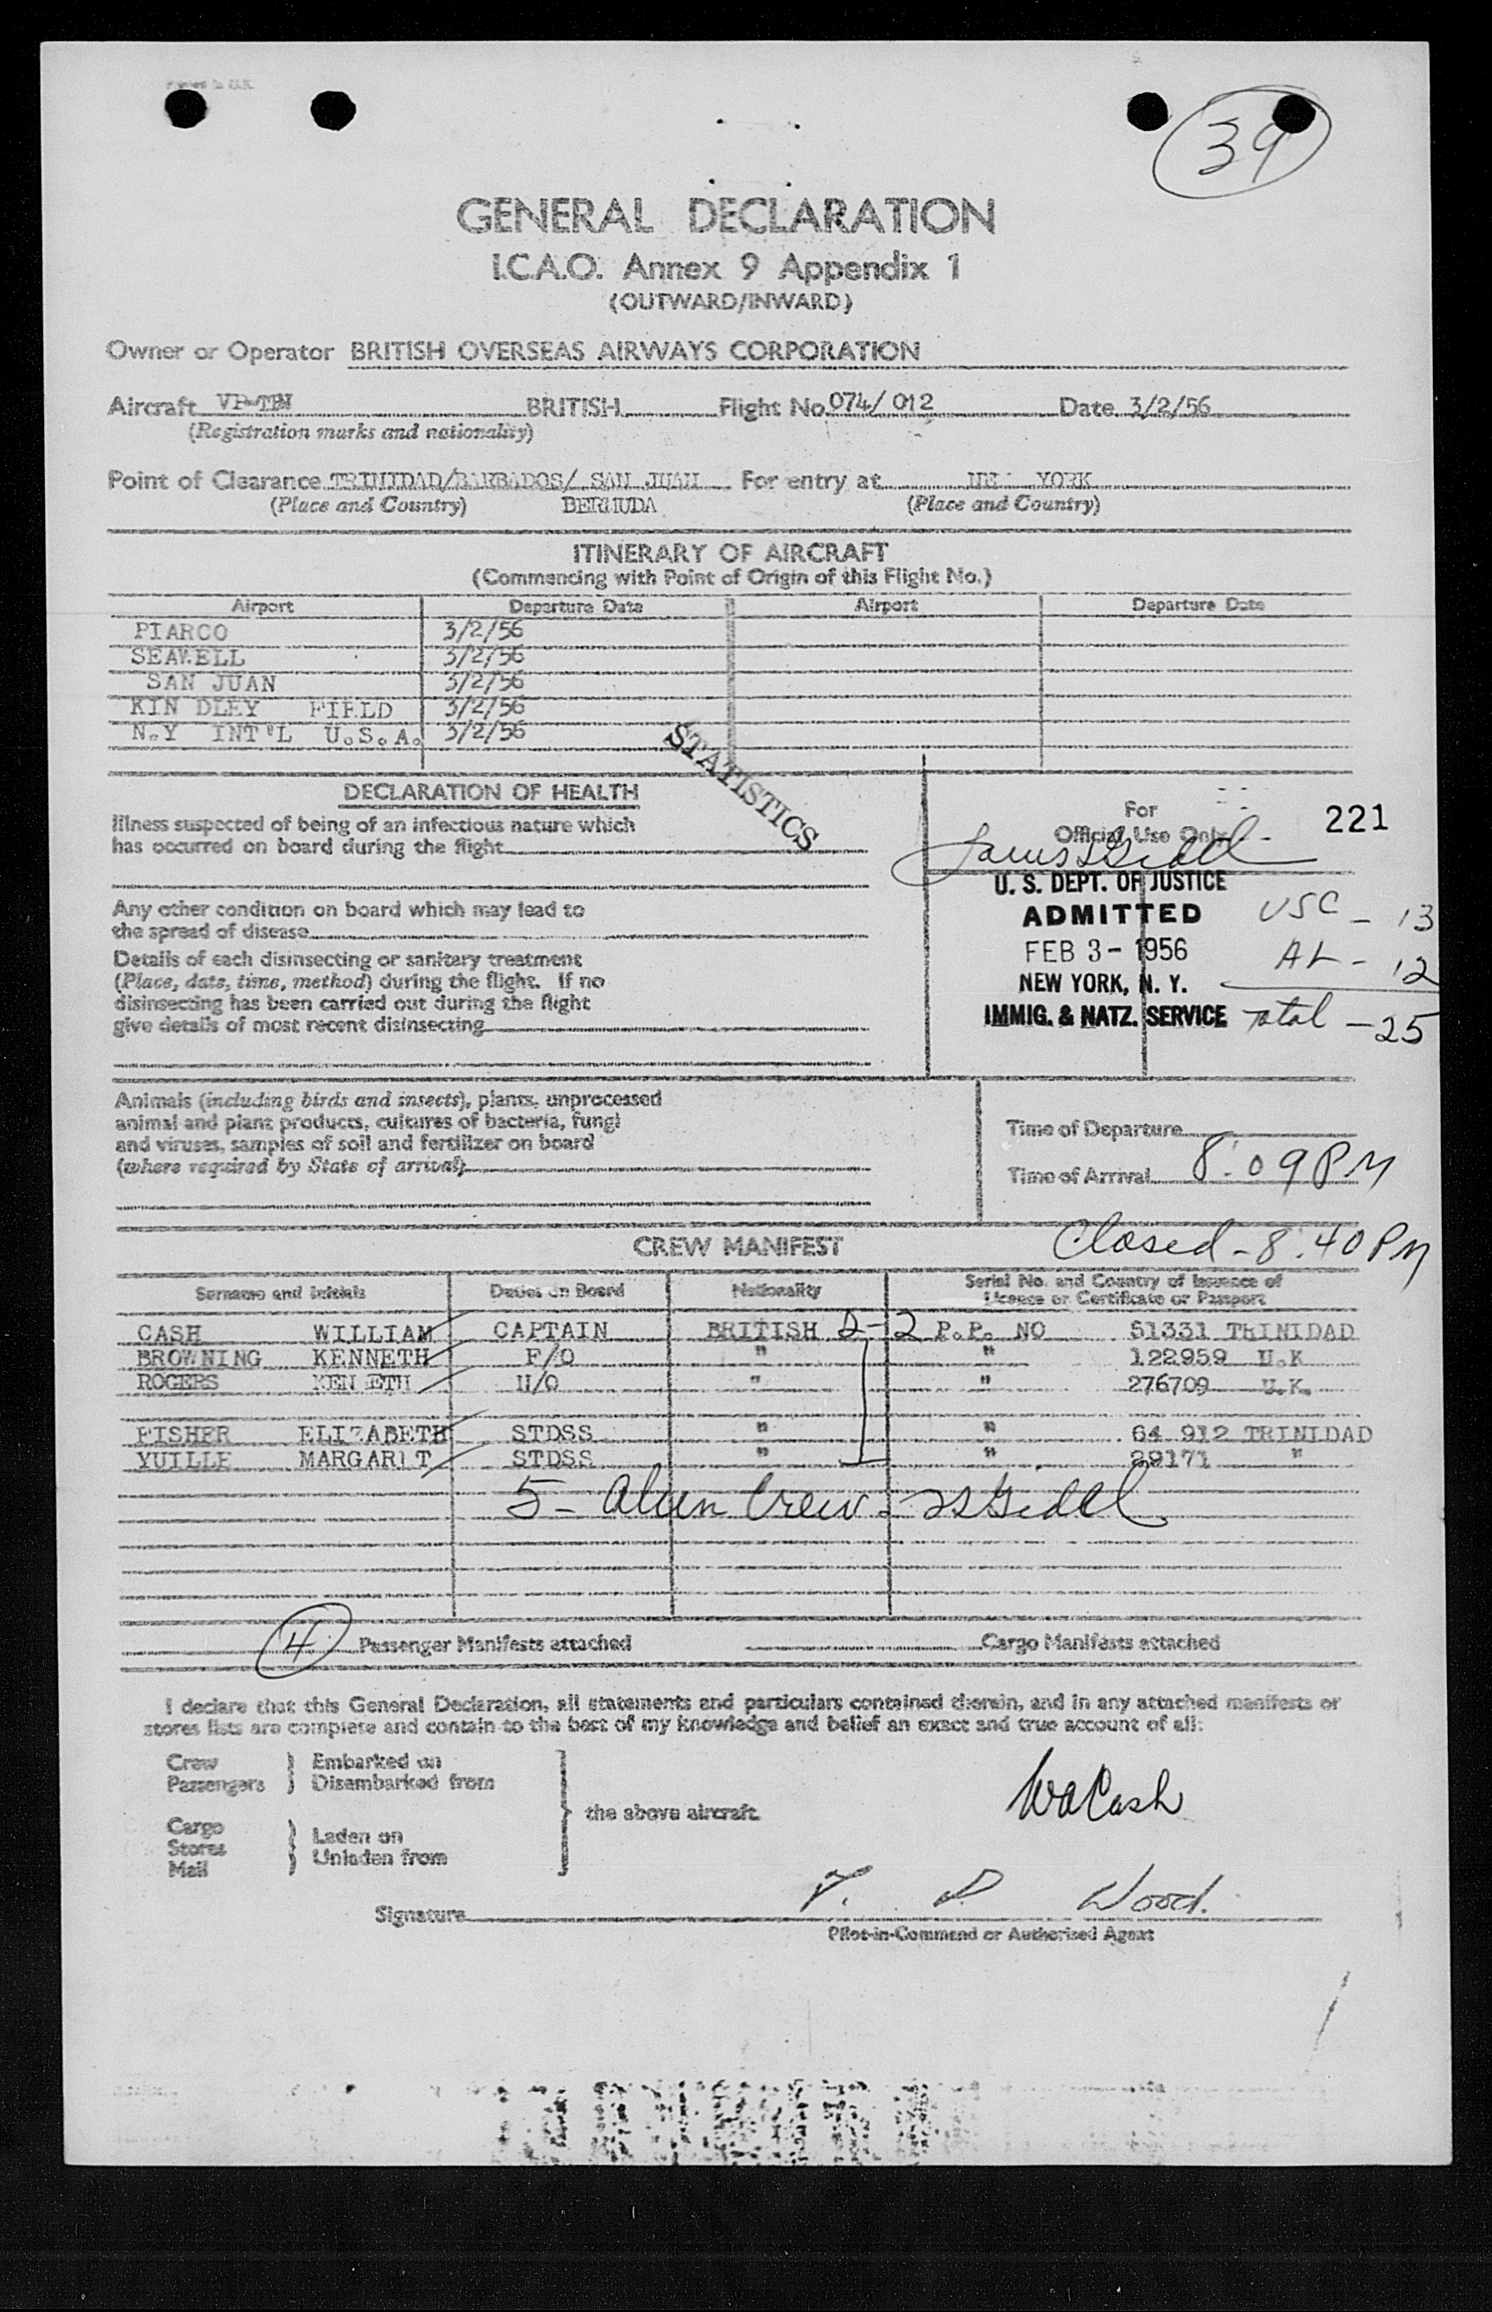 Printed in U.K.
39
GENERAL DECLARATION
I.C.A.O. Annex 9 Appendix 1
(OUTWARD/INWARD)
Owner or Operator BRITISH OVERSEAS AIRWAYS CORPORATION
Aircraft VP-TBN BRITISH Flight No. 074/ 012 Date 3/2/56
(Registration marks and nationality)
Point of Clearance TRINIDAD/BARBADOS/ SAN JUAN For entry at NEW YORK
(Place and Country) BERMUDA (Place and Country)
ITINERARY OF AIRCRAFT
(Commencing with Point of Origin of this Flight No.)
Airport Departure Date Airport Departure Date
PIARCO 3/2/56
SEAWELL 3/2/56
SAN JUAN 3/2/56
KIN DLEY FIELD 3/2/56
N.Y INT'L U.S.A. 3/2/56
STATISTICS
DECLARATION OF HEALTH
Illness suspected of being of an infectious nature which
has occurred on board during the flight
Any other condition on board which may lead to
the spread of disease
Details of each disinsecting or sanitary treatment
(Place, date, time, method) during the flight. If no
disinsecting has been carried out during the flight
give details of most recent disinsecting
For
Official Use Only
221
U. S. DEPT. OF JUSTICE
ADMITTED
FEB 3 - 1956
NEW YORK, N. Y.
IMMIG. & NATZ. SERVICE
USC - 13
AL - 12
Total - 25
Animals (including birds and insects), plants, unprocessed
animal and plant products, cultures of bacteria, fungi
and viruses, samples of soil and fertilizer on board
(where required by State of arrival)
Time of Departure
Time of Arrival 8:09 PM
Closed - 8:40 PM
CREW MANIFEST
Surname and Initials Duties on Board Nationality Serial No. and Country of Issuance of
Licence or Certificate or Passport
CASH WILLIAM CAPTAIN BRITISH D-2 P.P. NO 51331 TRINIDAD
BROWNING KENNETH F/O " " 122959 U.K
ROGERS KENNETH N/O " " 276709 U.K.
FISHER ELIZABETH STDSS " " 64 912 TRINIDAD
YUILLE MARGARET STDSS " " 29171 "
5 - Alien Crew
4 Passenger Manifests attached Cargo Manifests attached
I declare that this General Declaration, all statements and particulars contained therein, and in any attached manifests or
stores lists are complete and contain to the best of my knowledge and belief an exact and true account of all:
Crew Embarked on
Passengers Disembarked from
the above aircraft
Cargo
Stores Laden on
Mail Unladen from
WaCash
Signature T. P. Wood.
Pilot-in-Command or Authorised Agent